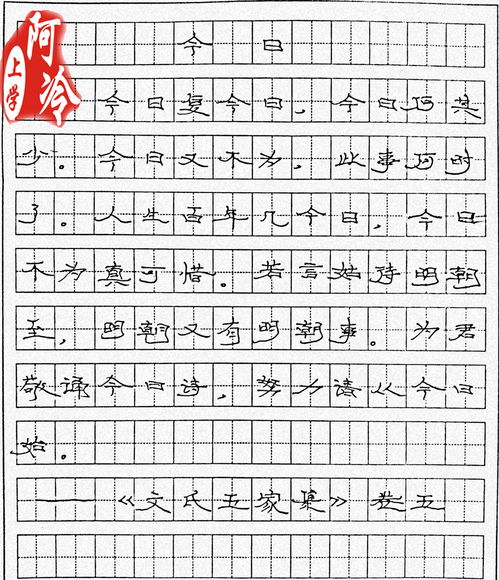 阿冷
上学
今日
今日复今日,今日何其
少。今日又不为,此事何时
了。人生百年几今日,今日
不为真可惜。若言姑待明朝
至,明朝又有明朝事。为君
敬诵今日诗,努力请从今日
始。
——《文氏五家集》卷五